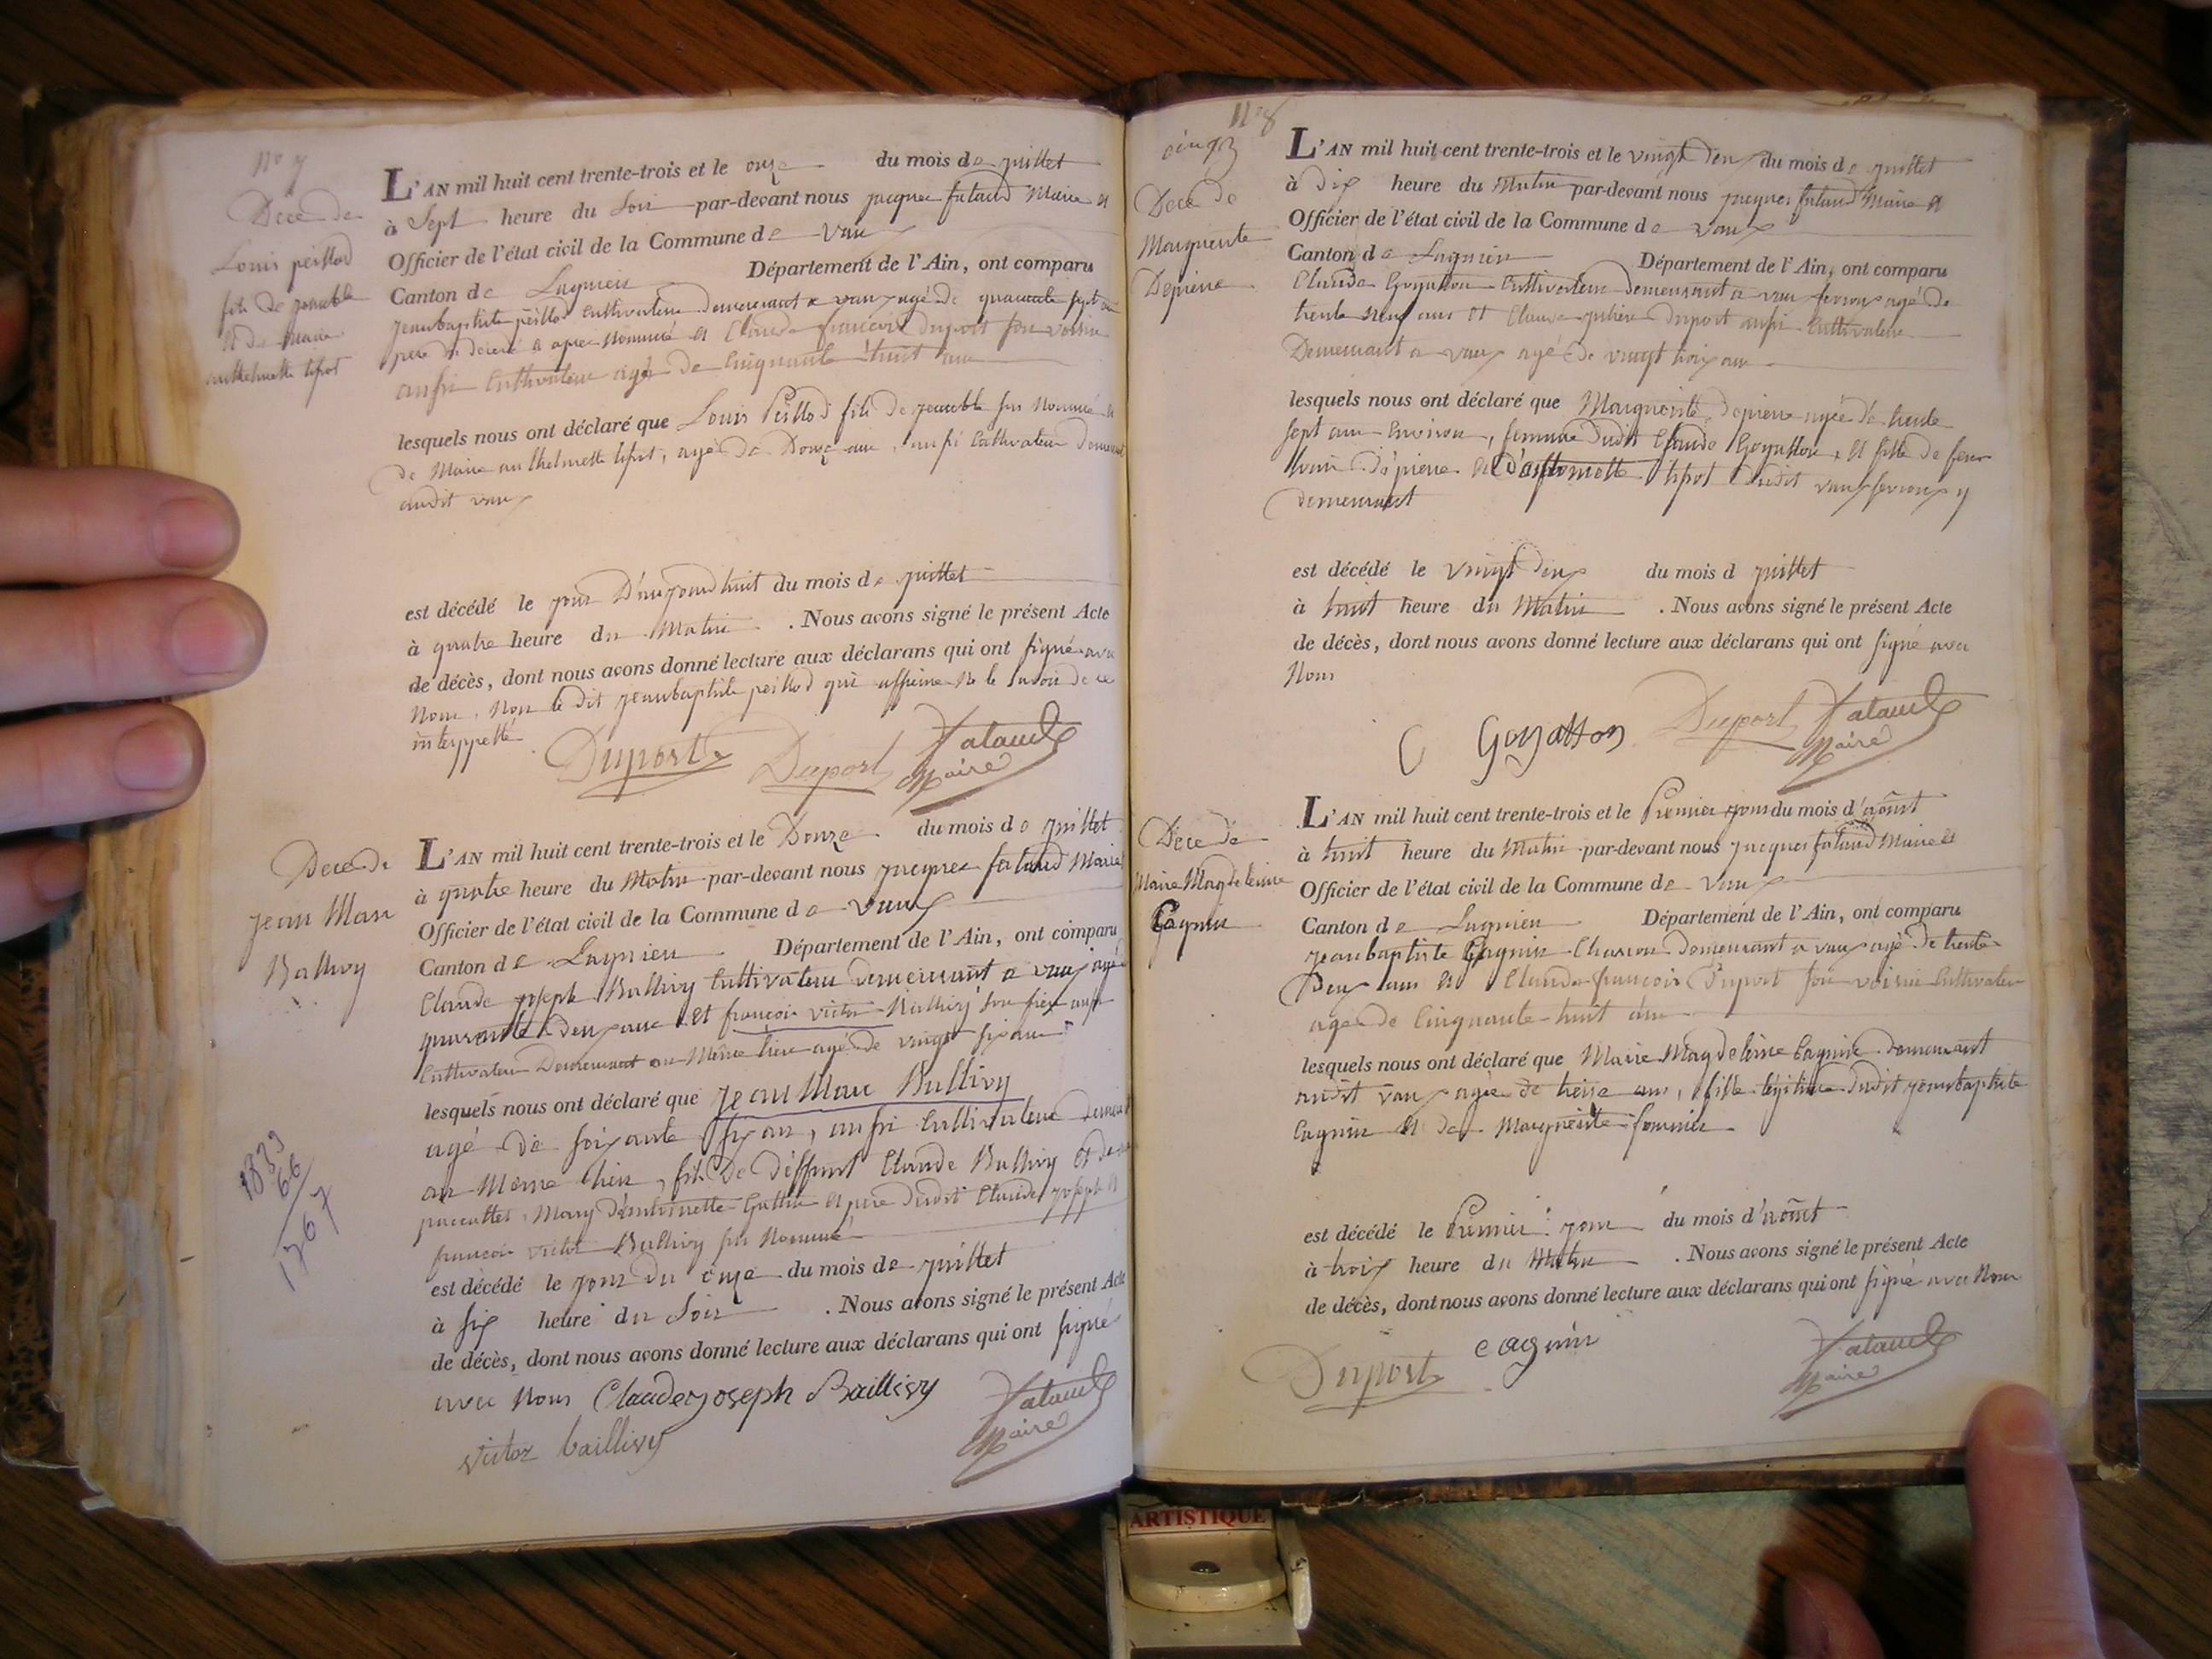 nº 7
Décé de
Louis peillod
fils de jeanbte
et de Marie
anthelmette tissot
L'AN mil huit cent trente-trois et le onze du mois de juillet
à Sept heure du Soir par-devant nous jacques fataud Maire et
Officier de l'état civil de la Commune de Vaux
Canton de Lagnieu Département de l'Ain, ont comparu
jeanbaptiste peillod Cultivateur demeurant a vaux agé de quarante sept ans
pere du décédé ci apres Nommé et Claude françois duport son voisin
aussi Cultivateur agé de Cinquante huit ans
lesquels nous ont déclaré que Louis Peillod fils de jeanbte sus Nommé et
de Marie anthelmette tissot, agé de Douze ans, aussi Cultivateur demeurant
audit vaux
est décédé le jour D'aujourd'huit du mois de juillet
à quatre heure du Matin . Nous avons signé le présent Acte
de décès, dont nous avons donné lecture aux déclarans qui ont signé avec
Nous, Non le dit jeanbaptiste peillod qui affirme Ne le Savoir de ce
interppellé
Duport Duport fataud
Maire
Decé de
jean Marc
Ballivy
1833
66
1767
L'AN mil huit cent trente-trois et le Douze du mois de juillet
à quatre heure du Matin par-devant nous jacques fataud Maire
Officier de l'état civil de la Commune de Vaux
Canton de Lagnieu Département de l'Ain, ont comparu
Claude joseph Ballivy Cultivateur demeurant a vaux agé
quarante deux ans et françois victor Ballivy son frère aussi
Cultivateur Demeurant au Même lieu agé de vingt six ans
lesquels nous ont déclaré que jean Marc Ballivy
agé de soixante six ans, aussi Cultivateur demeurt
au Même lieu, fils de déffunt Claude Ballivy et de
Mary d'antoinette et pere dudit Claude joseph et
françois victor Ballivy sus Nommé
est décédé le jour du onze du mois de juillet
à six heure du Soir . Nous avons signé le présent Acte
de décès, dont nous avons donné lecture aux déclarans qui ont signé
avec Nous Claude joseph Baillivy fataud
Maire
victor baillivy
Nº 8
Décé de
Marguerite
Depierre
L'AN mil huit cent trente-trois et le vingt deux du mois de juillet
à dix heure du Matin par-devant nous jacques fataud Maire et
Officier de l'état civil de la Commune de vaux
Canton de Lagnieu Département de l'Ain, ont comparu
Claude Goyatton Cultivateur demeurant a vaux fevroux agé de
trente neuf ans et Claude duport aussi Cultivateur
Demeurant a vaux agé de vingt trois ans
lesquels nous ont déclaré que Marguerite depierre agée de trente
sept ans Environ, femme dudit Claude Goyatton, et fille de feu
Louis depierre et tissot dudit vaux fevroux y
demeurant
est décédé le vingt deux du mois d juillet
à huit heure du Matin . Nous avons signé le présent Acte
de décès, dont nous avons donné lecture aux déclarans qui ont signé avec
Nous
C Goyatton Duport fataud
Maire
Décé de
Marie Magdeleine
Cagnin
L'AN mil huit cent trente-trois et le Premier jour du mois d'aoust
à huit heure du Matin par-devant nous jacques fataud Maire et
Officier de l'état civil de la Commune de Vaux
Canton de Lagnieu Département de l'Ain, ont comparu
jeanbaptiste Cagnin Charron demeurant a vaux agé de trente
Deux ans et Claude françois Duport son voisin Cultivateur
agé de Cinquante-huit ans
lesquels nous ont déclaré que Marie Magdeleine Cagnin demeurant
audit vaux agée de treize ans, fille légitime dudit jeanbaptiste
Cagnin et de Marguerite fournier
est décédé le Premier jour du mois d'aoust
à trois heure du Matin . Nous avons signé le présent Acte
de décès, dont nous avons donné lecture aux déclarans qui ont signé avec Nous
Duport cagnin fataud
Maire
ARTISTIQUE